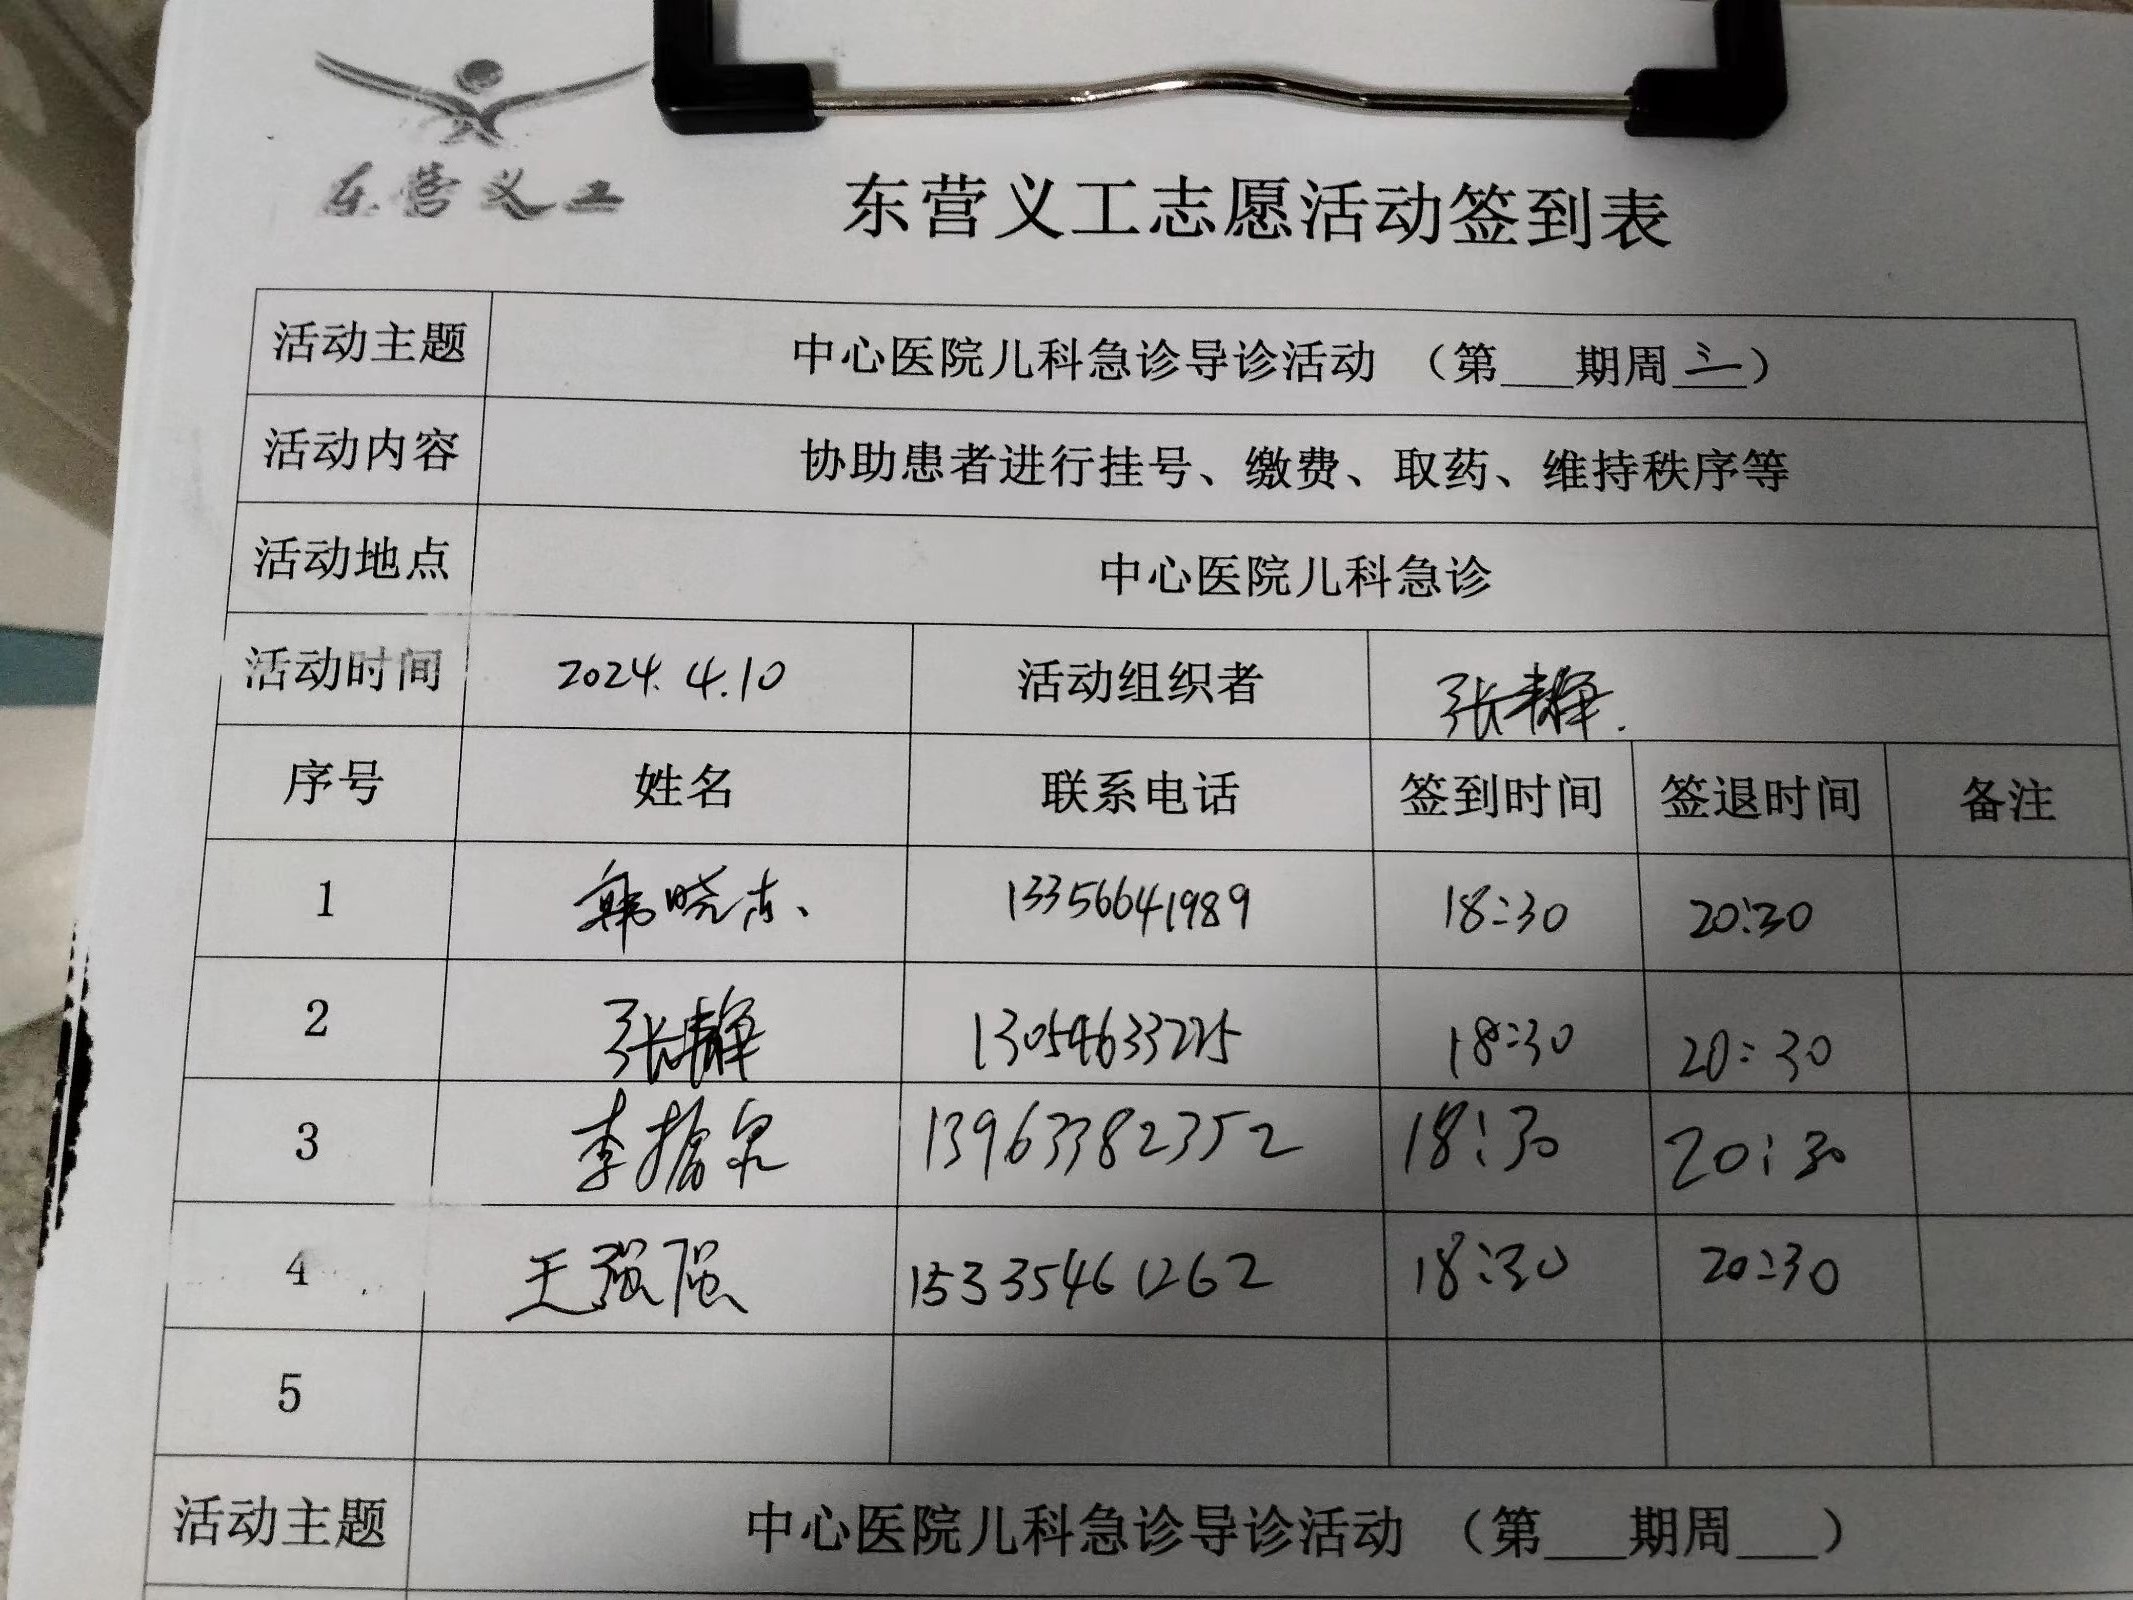 东营义工
东营义工志愿活动签到表
活动主题 中心医院儿科急诊导诊活动 （第___期周三）
活动内容 协助患者进行挂号、缴费、取药、维持秩序等
活动地点 中心医院儿科急诊
活动时间 2024.4.10 活动组织者 张静.
序号 姓名 联系电话 签到时间 签退时间 备注
1 韩晓东、 13356641989 18:30 20:30
2 张静 18:30 20:30
3 李 泉 13963382352 18:30 20:30
4 王强强 15335461262 18:30 20:30
5
活动主题 中心医院儿科急诊导诊活动 （第___期周___）